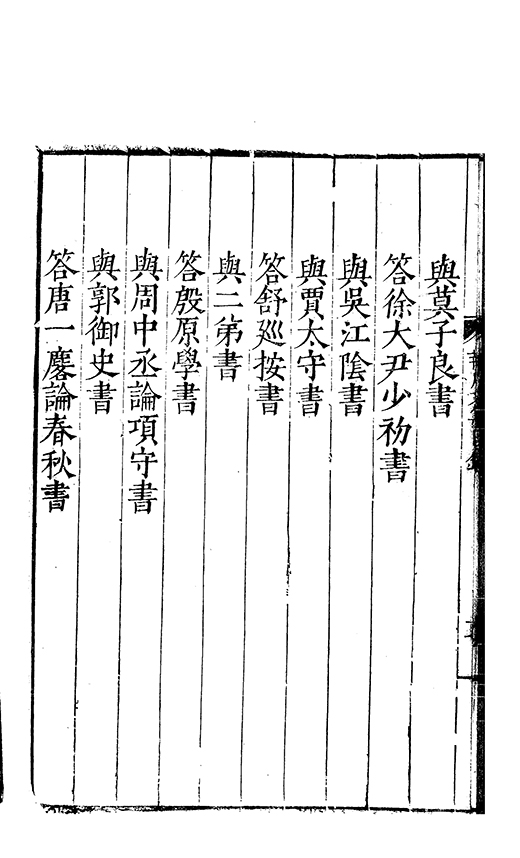 與莫子良書
答徐大尹少礽書
與吳江陰書
與賈太守書
答舒廵按書
與二第書
答殷原學書
與周中丞論項守書
與郭御史書
答唐一麐論春秋書